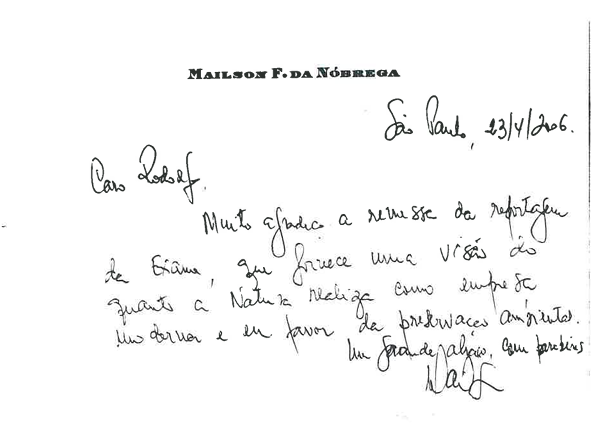 MAILSON F. DA NÓBREGA
São Paulo, 23/4/2006.
Caro Rodolfo,
Muito agradeço a remessa da reportagem
da Exame, que fornece uma visão do
quanto a Natura realiza como empresa
moderna e em favor da preservação ambiental.
Um grande abraço, com parabéns